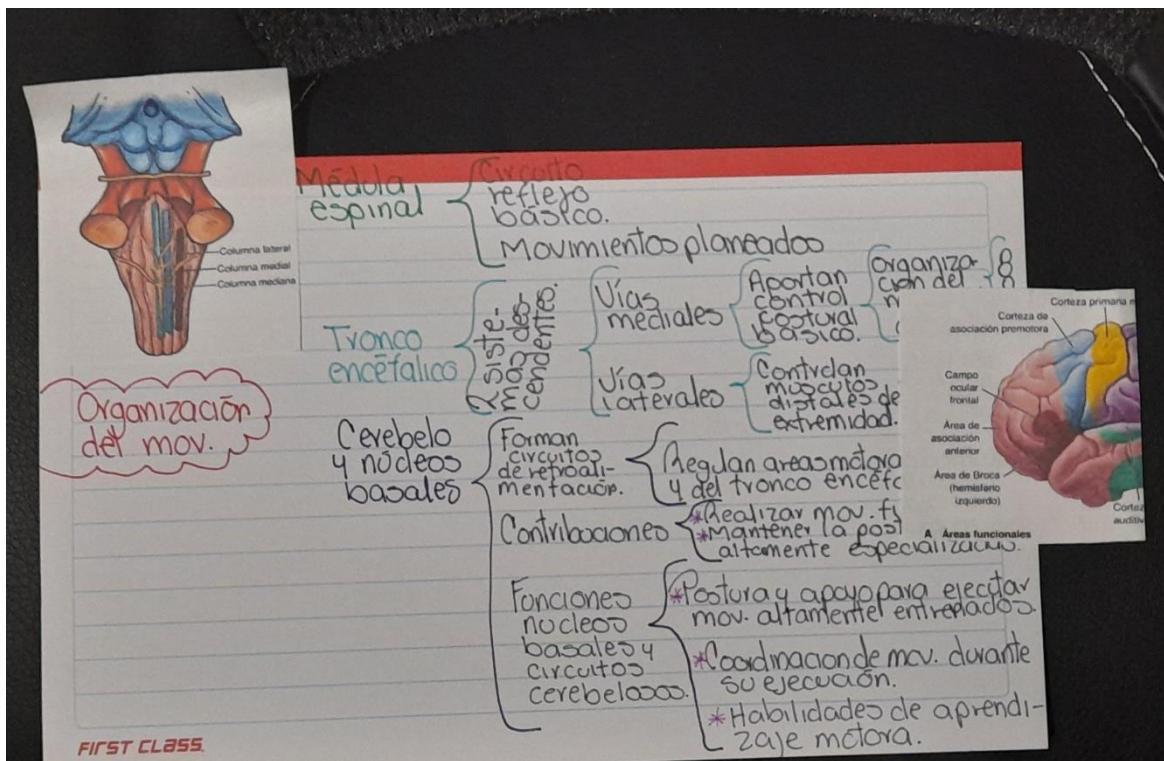 Columna lateral
Columna medial
Columna mediana
Médula
espinal
Circuito
reflejo
básico.
Movimientos planeados
Tronco
encéfalico
2 siste-
mas des-
cendentes.
Vías
mediales
Aportan
control
postural
básico.
Organiza-
cion del
Vías
laterales
Controlan
musculos
distales de
extremidad.
Organización
del mov.
Cerebelo
y núcleos
basales
Forman
circuitos
de retroali-
mentación.
Regulan areas motora
y del tronco encéfa
Contribuciones
*Realizar mov. fi
*Mantener la post
altamente
Funciones
nucleos
basales y
circuitos
cerebelosos.
*Postura y apoyo para ejecutar
mov. altamente entrenados.
*Coordinacion de mov. durante
su ejecución.
*Habilidades de aprendi-
zaje motora.
Corteza primaria m
Corteza de
asociación premotora
Campo
ocular
frontal
Área de
asociación
anterior
Área de Broca
(hemisferio
izquierdo)
Cortez
auditiv
A Áreas funcionales
FIRST CLASS